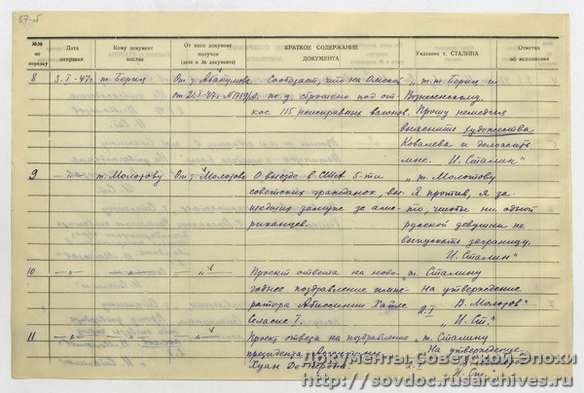 57-об
№№ по порядку
Дата отправки
Кому документ послан
От кого документ получен (дата и № документа)
КРАТКОЕ СОДЕРЖАНИЕ ДОКУМЕНТА
Указание т. СТАЛИНА
Отметка об исполнении
8 3.I-47г. т. Берии От т. Абакумова Сообщает, что на Омской „т.т. Берии и
ж.д. сброшено под от- Вознесенскому.
кос 115 неисправных вагонов. Прошу немедля
выяснить художества
Ковалева и доложить
мне. И. Сталин"
9 т. Молотову От т. Молотова О выезде в США 5-ти „т. Молотову
советских гражданок, вы- Я против, я за
шедших замуж за аме- то, чтобы ни одной
риканцев. русской девушки не
выпускать заграницу.
И. Сталин"
10 Проект ответа на ново- „т. Сталину
годнее поздравление импе- На утверждение
ратора Абиссинии Хайле В. Молотов"
Селассие I. 2.I „И. Ст."
11 Проект ответа на поздравление „т. Сталину
президента На утверждение
Хуан
„И. Ст."
Документы Советской Эпохи
http://sovdoc.rusarchives.ru